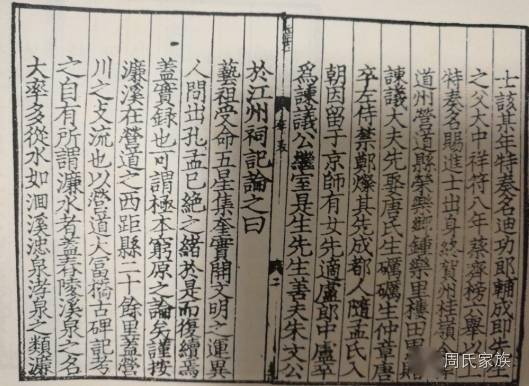 士該某年特奏名迪功郎輔成即先生
之父大中祥符八年蔡齊榜公舉以
特奏名賜進士出身終賀州桂嶺令
道州營道縣榮樂鄉鍾樂里樓田
諫議大夫先娶唐氏生礪礪生仲章唐
卒左侍禁鄭燦其先成都人隨孟氏入
朝因留于京師有女先適盧郎中盧卒
為諫議公繼室是生先生善夫朱文公
年表 二
於江州祠記論之曰
藝祖受命五星集奎實開文明之運異
人間出孔孟已絕之緒於是而復續焉
蓋實錄也可謂極本窮原之論矣謹按
濂溪在營道之西距縣二十餘里蓋營
川之支流也以營道大富橋古碑記考
之自有所謂濂水者蓋舂陵溪泉之名
大率多從水如洄溪泉涍泉之類濂
周氏家族